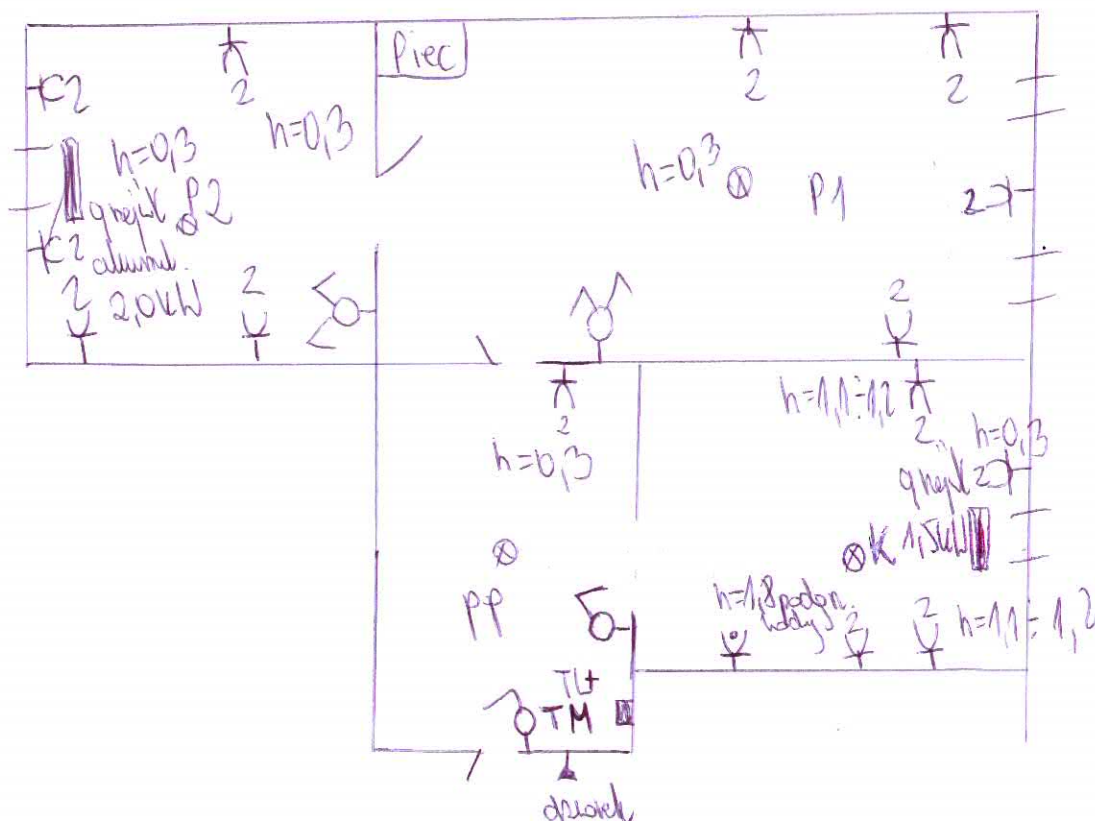 Piec
2
2
2
2
h=0,3
h=0,3
h=0,3
P1
2
grzejnik
P2
2
akumul.
2
2
2,0kW
2
h=1,1÷1,2
2
2
h=0,3
h=0,3
grzejnik
2
K
1,5kW
PP
h=1,8
podgrz.
wody
2
2
h=1,1÷1,2
TL+
TM
dzwonek